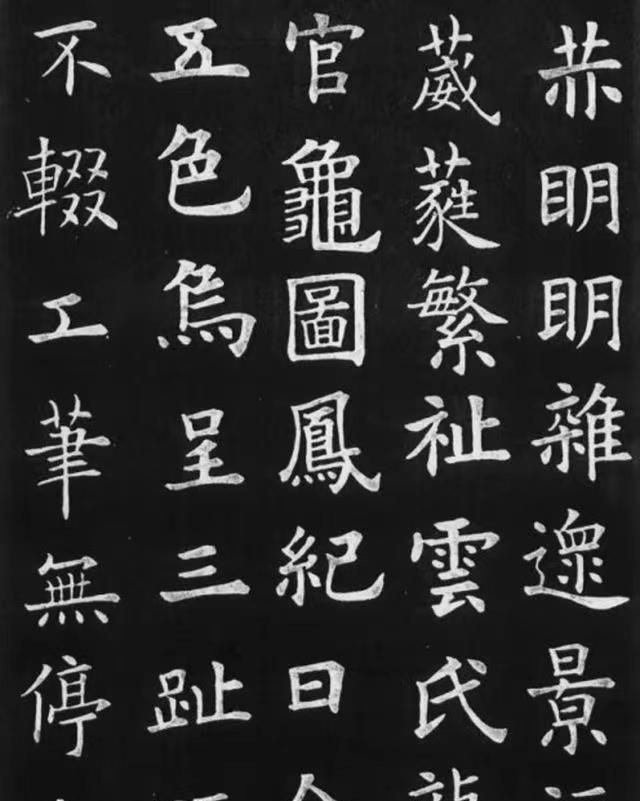 眀眀雜遝景
葳蕤繁祉雲氏
官龜圖鳳紀日
五色烏呈三趾
不輟工筆無停